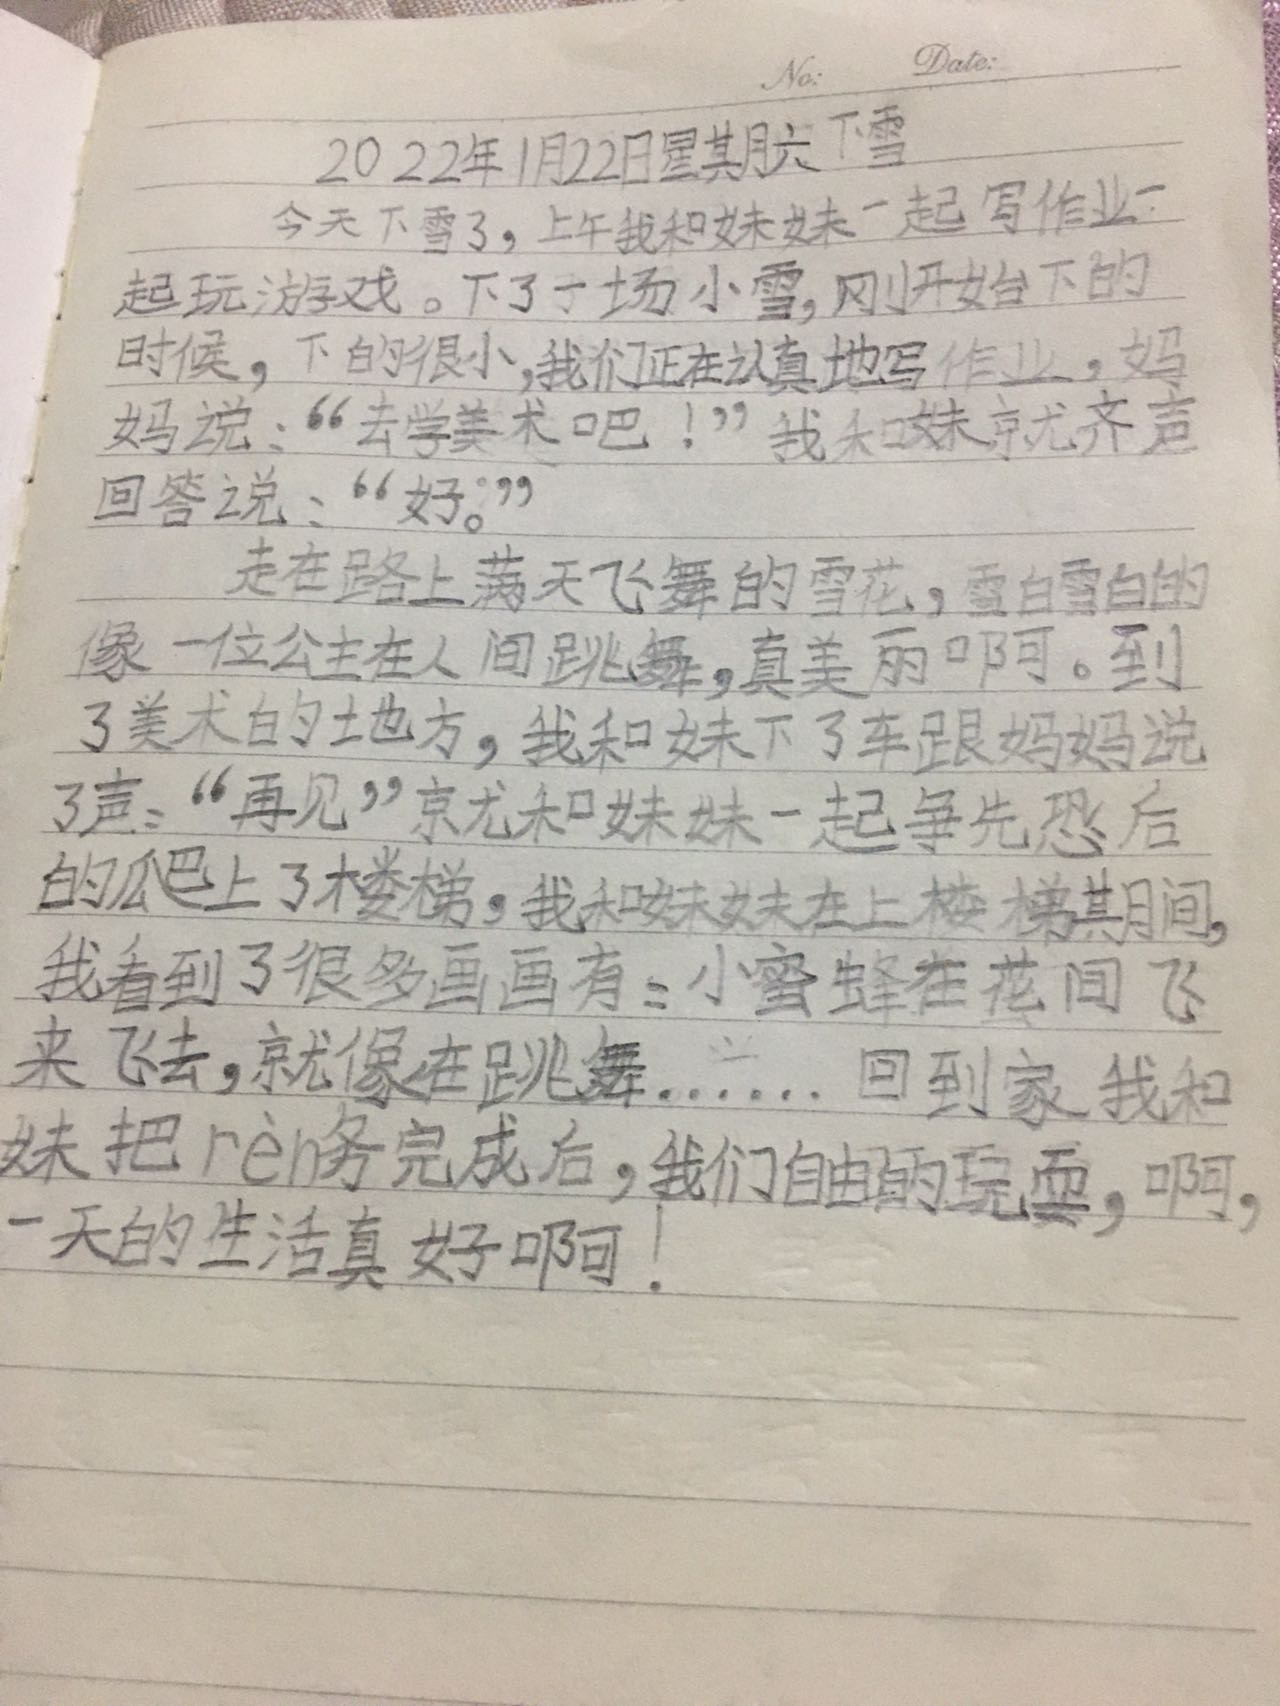 No: Date:
2022年1月22日星期六下雪
今天下雪了，上午我和妹妹一起写作业一
起玩游戏。下了一场小雪，刚开始下的
时候，下的很小，我们正在认真地写作业，妈
妈说：“去学美术吧！”我和妹就齐声
回答说：“好。”
走在路上满天飞舞的雪花，雪白雪白的
像一位公主在人间跳舞，真美丽啊。到
了美术的地方，我和妹下了车跟妈妈说
了声：“再见”就和妹妹一起争先恐后
的爬上了楼梯，我和妹妹在上楼梯期间，
我看到了很多画画有：小蜜蜂在花间飞
来飞去，就像在跳舞……回到家我和
妹把rèn务完成后，我们自由的玩耍，啊，
一天的生活真好啊！